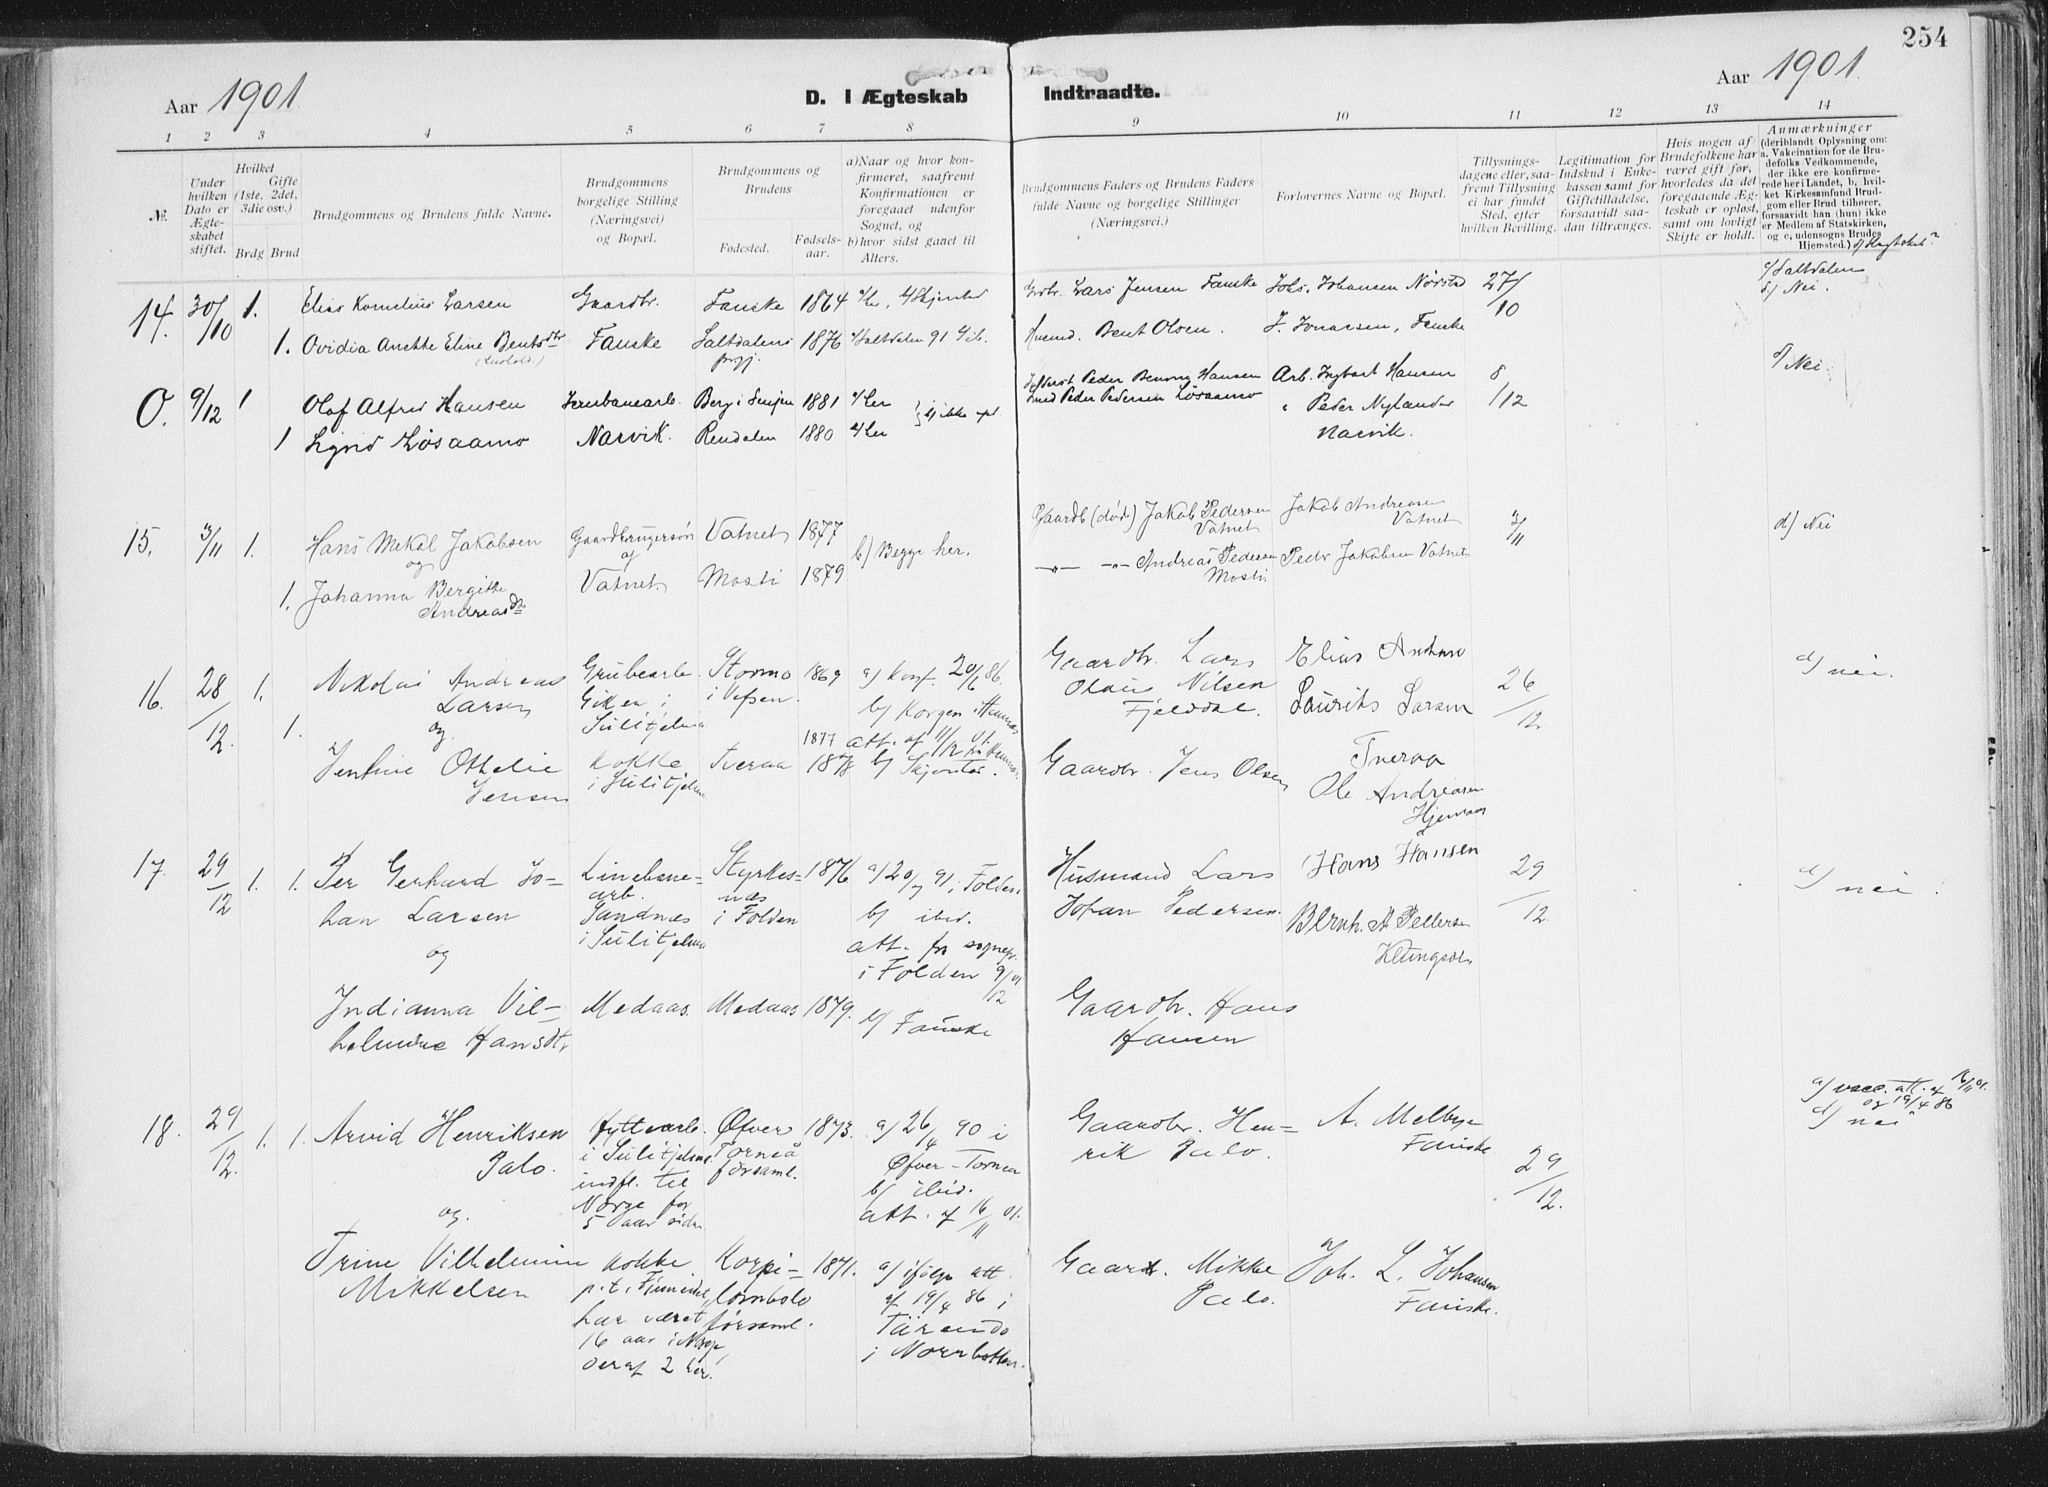 254
Aar 1901
D. I Ægteskab Indtraadte.
Aar 1901.
1 2 3 4 5 6 7 8 9 10 11 12 13 14
№.
Under hvilken Dato er Ægteskabet stiftet.
Hvilket Gifte (1ste, 2det, 3die osv.)
Brdg Brud
Brudgommens og Brudens fulde Navne.
Brudgommens borgelige Stilling (Næringsvei) og Bopæl.
Brudgommens og Brudens
Fødested.
Fødsels-aar.
a) Naar og hvor konfirmeret, saafremt Konfirmationen er foregaaet udenfor Sognet, og
b) hvor sidst gaaet til Alters.
Brudgommens Faders og Brudens Faders fulde Navne og borgelige Stillinger (Næringsvei.)
Forlovernes Navne og Bopæl.
Tillysningsdagene eller, saafremt Tillysning ei har fundet Sted, efter hvilken Bevilling.
Legitimation for Indskud i Enkekassen samt for Giftetilladelse, forsaavidt saadan tiltrænges.
Hvis nogen af Brudefolkene har været gift før, hvorledes da det foregaaende Ægteskab er opløst, samt om lovligt Skifte er holdt.
Anmærkninger (deriblandt Oplysning om: a. Vakcination for de Brudefolks Vedkommende, der ikke ere konfirmerede her i Landet, b, hvilket Kirkesamfund Brudgom eller Brud tilhører, forsaavidt han (hun) ikke er Medlem af Statskirken, og c, udensogns Brudes Hjemsted.)
14. 30/10 1. Elias Kornelius Larsen Gaardbr. Fauske 1864 Lars Jensen Fauske Johs. Johansen Nørstad 27/10 c/ Saltdalen
d/ Nei.
1. Ovidia Anette Eline Bentsdtr Fauske Saltdalens prgj. 1876 Saltdalen 91 Husmd. Bent Olsen. J. Jonassen, Fauske
O. 9/12 1 Olaf Alfred Hansen Jernbanearb. Berg i Senjen 1881 Peder Hansen Arb. Ingbart Hansen 8/12 d/ Nei
1 Sigrid Løsaamo Narvik. Rendalen 1880 Peder Pedersen Løsaamo " Peder Nylander
Narvik.
15. 3/11 1. Hans Mekal Jakobsen Gaardbrugersøn Vatnet 1877 b) Begge her. Gaardb (død) Jakob Pedersen Vatnet Jakob Andreasen Vatnet 3/11 d) Nei
og af
1. Johanna Bergitte Andreasdtr Vatnet Mosti 1879 Andreas Pedersen Mosti Peder Jakobsen Vatnet
16. 28/12. 1. Nikolai Andreas Larsen Grubearb. Giken i Sulitjelma Stormo i Vefsen. 1869 a) Konf. 20/6 86. b) Korgen i Hemnes Gaardbr. Lars Olaus Nilsen Fjelddal. Elias Antons Laurits Larsen 26/12. d) nei.
og att. af 11/12 01.
1. Jentine Othelie Jensen Kokke i Sulitjelma Tveraa 1877 1878 b) Skjerstad. Gaardbr. Jens Olsen Tveraa
Ole Andreasen
17. 29/12 1. 1. Per Gerhard Johan Larsen Linebanearb. Sandnæs i Sulitjelma Styrkesnæs i Folden 1876 a) 20/7 91 i Folden. b) ibid. att. fra sognepr. i Folden 9/12 01 Husmand Lars Johan Pedersen. Hans Hansen 29/12. d) nei.
Bernh. A Pettersen Klungset
og
Indianna Vilhelmine Hansdtr Medaas. Medaas 1879. b/ Fauske Gaardbr. Hans Hansen
18. 29/12. 1. 1. Arvid Henriksen Palo. Hyttearb. i Sulitjelma. indfl. til Norge for 5 aar siden Øfver Torneå församl. 1873. a) 26/4 90 i Øfver-Tornea b/ ibid. att. af 16/11 01. Gaardbr. Henrik Palo. A. Melbye Fauske 29/12. a) vacc. att. af 16/11 01. og 19/4 86
d) nei
og.
Trine Vilhelmina Mikkelsen Kokke p.t. i Fineidet, har været 16 aar i Norge deraf 2 her. Korpilombolo församl. 1871. a) ifølge att. af 19/4 86 i Tärendo i Norrbotten. Gaardbr. Mikke Palo. Joh. L. Johansen Fauske.